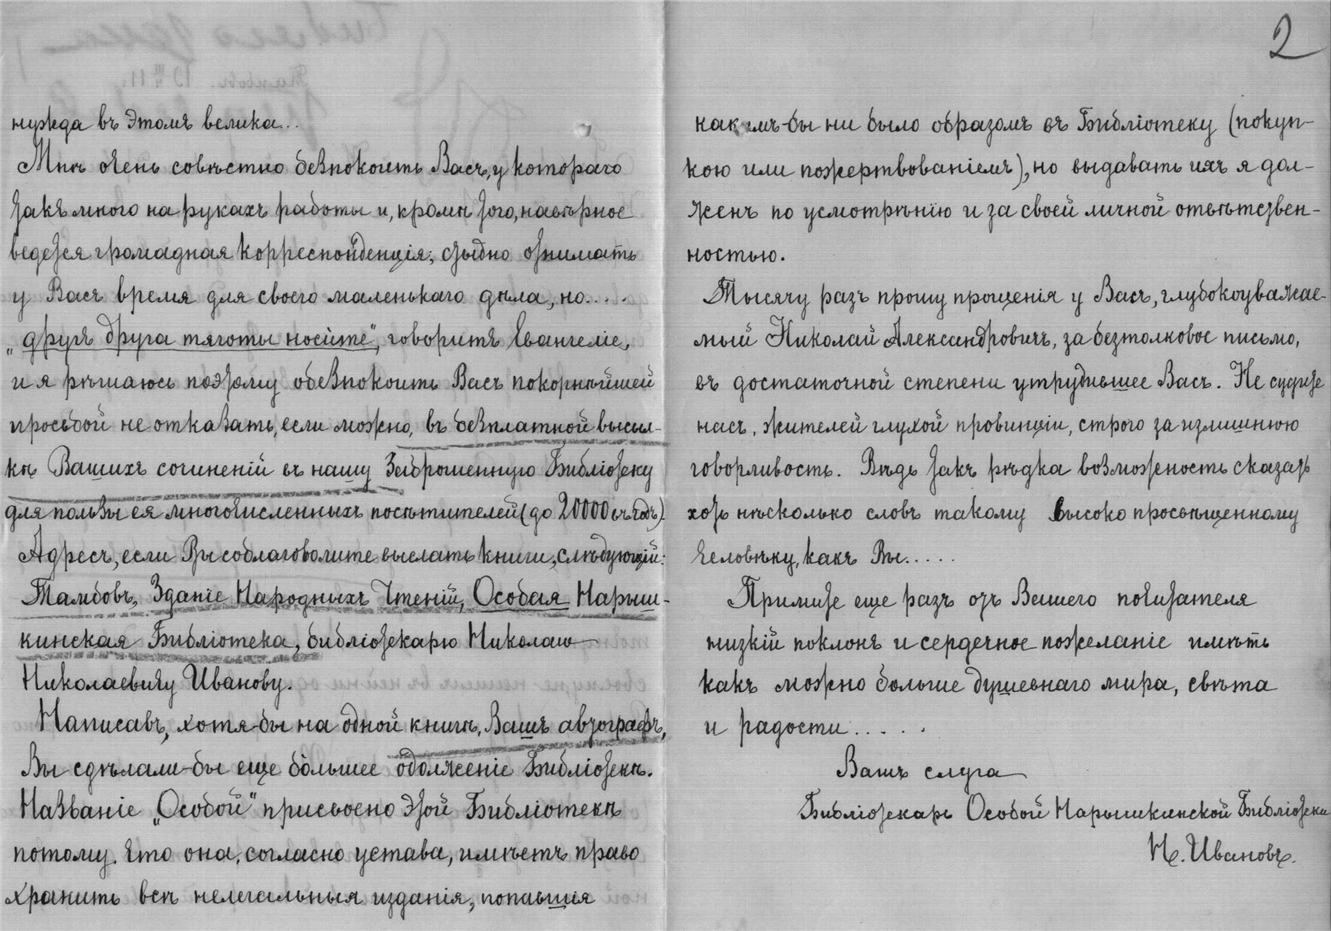 2
нужда въ этомъ велика...
Мнѣ очень совѣстно безпокоить Васъ, у котораго
такъ много на рукахъ работы и, кромѣ того, навѣрное
ведется громадная корреспонденція; стыдно отнимать
у Васъ время для своего маленькаго дѣла, но....
„другъ друга тяготы носите", говоритъ Евангеліе,
и я рѣшаюсь поэтому обезпокоить Васъ покорнѣйшей
просьбой не отказать, если можно, въ безплатной высыл-
кѣ Вашихъ сочиненій въ нашу Заброшенную Библіотеку
для пользы ея многочисленныхъ посѣтителей (до 20000 въ годъ).
Адресъ, если Вы соблаговолите выслать книги, слѣдующій:
Тамбовъ, Зданіе Народныхъ Чтеній, Особая Нарыш-
кинская Библіотека, библіотекарю Николаю
Николаевичу Иванову.
Написавъ, хотя-бы на одной книгѣ, Вашъ автографъ,
Вы сдѣлали-бы еще бо́льшее одолженіе Библіотекѣ.
Названіе „Особой" присвоено этой Библіотекѣ
потому, что она, согласно устава, имѣетъ право
хранить всѣ нелегальныя изданія, попавшія
какимъ-бы ни было образомъ въ Библіотеку (покуп-
кою или пожертвованіемъ), но выдавать ихъ я дол-
женъ по усмотрѣнію и за своей личной отвѣтствен-
ностью.
Тысячу разъ прошу прощенія у Васъ, глубокоуважае-
мый Николай Александровичъ, за безтолковое письмо,
въ достаточной степени утрудившее Васъ. Не судите
насъ, жителей глухой провинціи, строго за излишнюю
говорливость. Вѣдь такъ рѣдка возможность сказать
хоть нѣсколько словъ такому высоко просвѣщенному
человѣку, какъ Вы.....
Примите еще разъ отъ Вашего почитателя
низкій поклонъ и сердечное пожеланіе имѣть
какъ можно больше душевнаго мира, свѣта
и радости.....
Вашъ слуга
Библіотекарь Особой Нарышкинской Библіотеки
Н. Ивановъ.